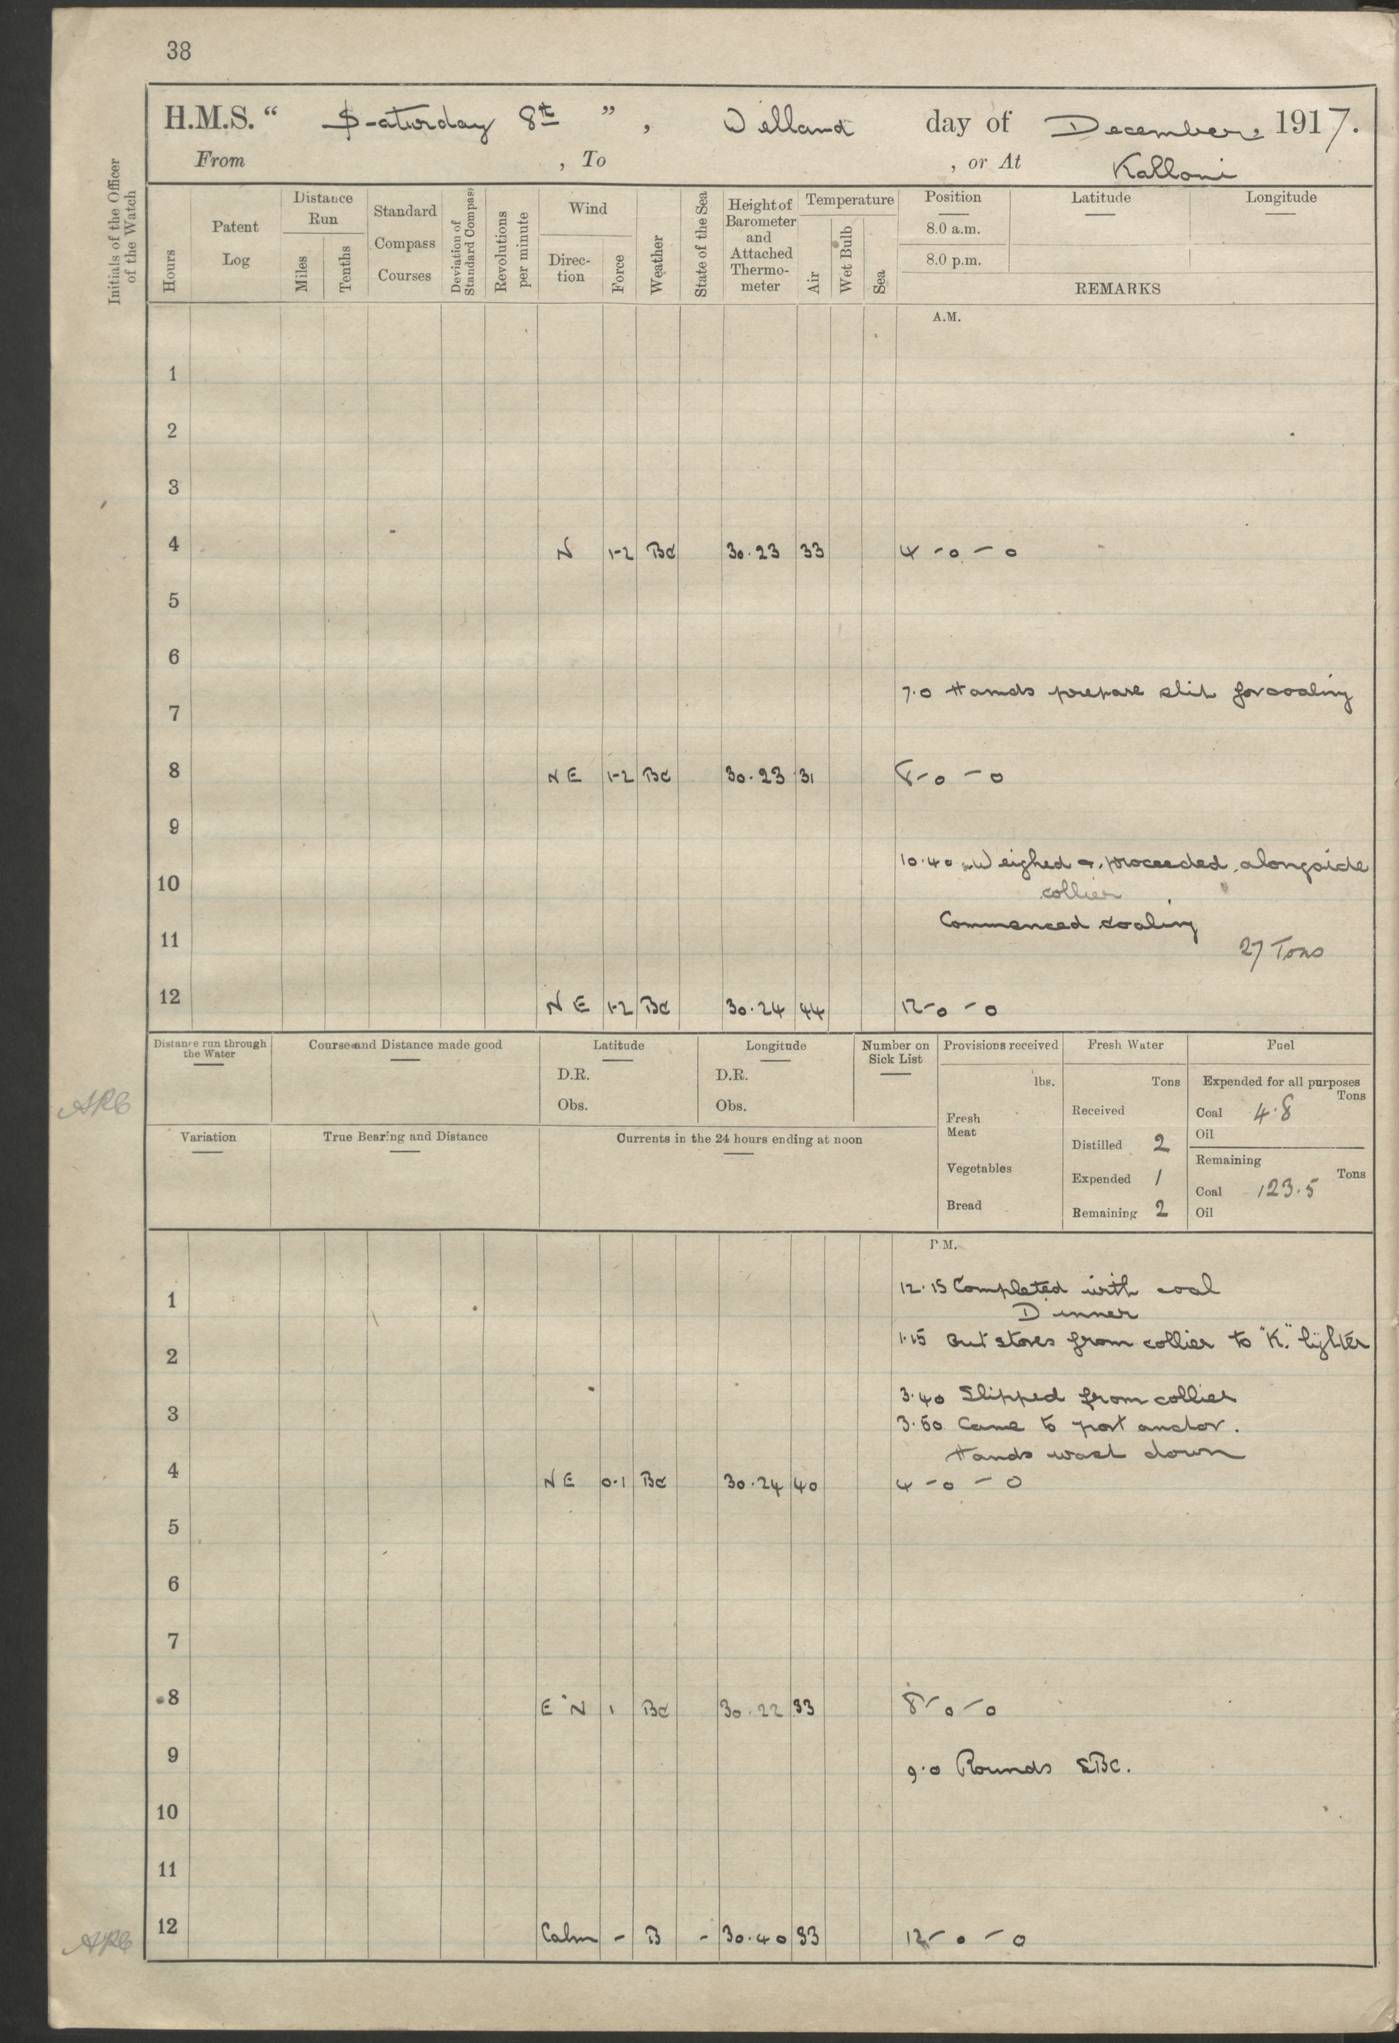 38
H.M.S. “ Saturday 8th ” , Welland day of December, 1917.
From , To , or At Kalloni
Initials of the Officer of the Watch
Hours
Patent Log
Distance Run
Miles
Tenths
Standard Compass Courses
Deviation of Standard Compass
Revolutions per minute
Wind
Direction
Force
Weather
State of the Sea
Height of Barometer and Attached Thermometer
Temperature
Air
Wet Bulb
Sea
Position
8.0 a.m.
8.0 p.m.
Latitude
Longitude
REMARKS
A.M.
1
2
3
4 N 1-2 Bc 30.23 33 4 - 0 - 0
5
6
7.0 Hands prepare ship for coaling
7
8 NE 1-2 Bc 30.23 31 8 - 0 - 0
9
10.40 Weighed & proceeded alongside
10 collier
Commenced coaling
11 27 Tons
12 NE 1-2 Bc 30.24 44 12 - 0 - 0
Distance run through the Water
Course and Distance made good
Latitude
D.R.
Obs.
Longitude
D.R.
Obs.
Number on Sick List
Provisions received
lbs.
Fresh Meat
Vegetables
Bread
Fresh Water
Tons
Received
Distilled 2
Expended 1
Remaining 2
Fuel
Expended for all purposes
Tons
Coal 4.8
Oil
Remaining
Tons
Coal 123.5
Oil
Variation
True Bearing and Distance
Currents in the 24 hours ending at noon
P.M.
12.15 Completed with coal
1
Dinner
1.15 Out stores from collier to "K." lighter
2
3.40 Slipped from collier
3
3.50 Came to port anchor.
Hands wash down
4 NE 0.1 Bc 30.24 40 4 - 0 - 0
5
6
7
8 E'N 1 Bc 30.22 33 8 - 0 - 0
9 9.0 Rounds EBC.
10
11
12 Calm - B - 30.40 33 12 - 0 - 0